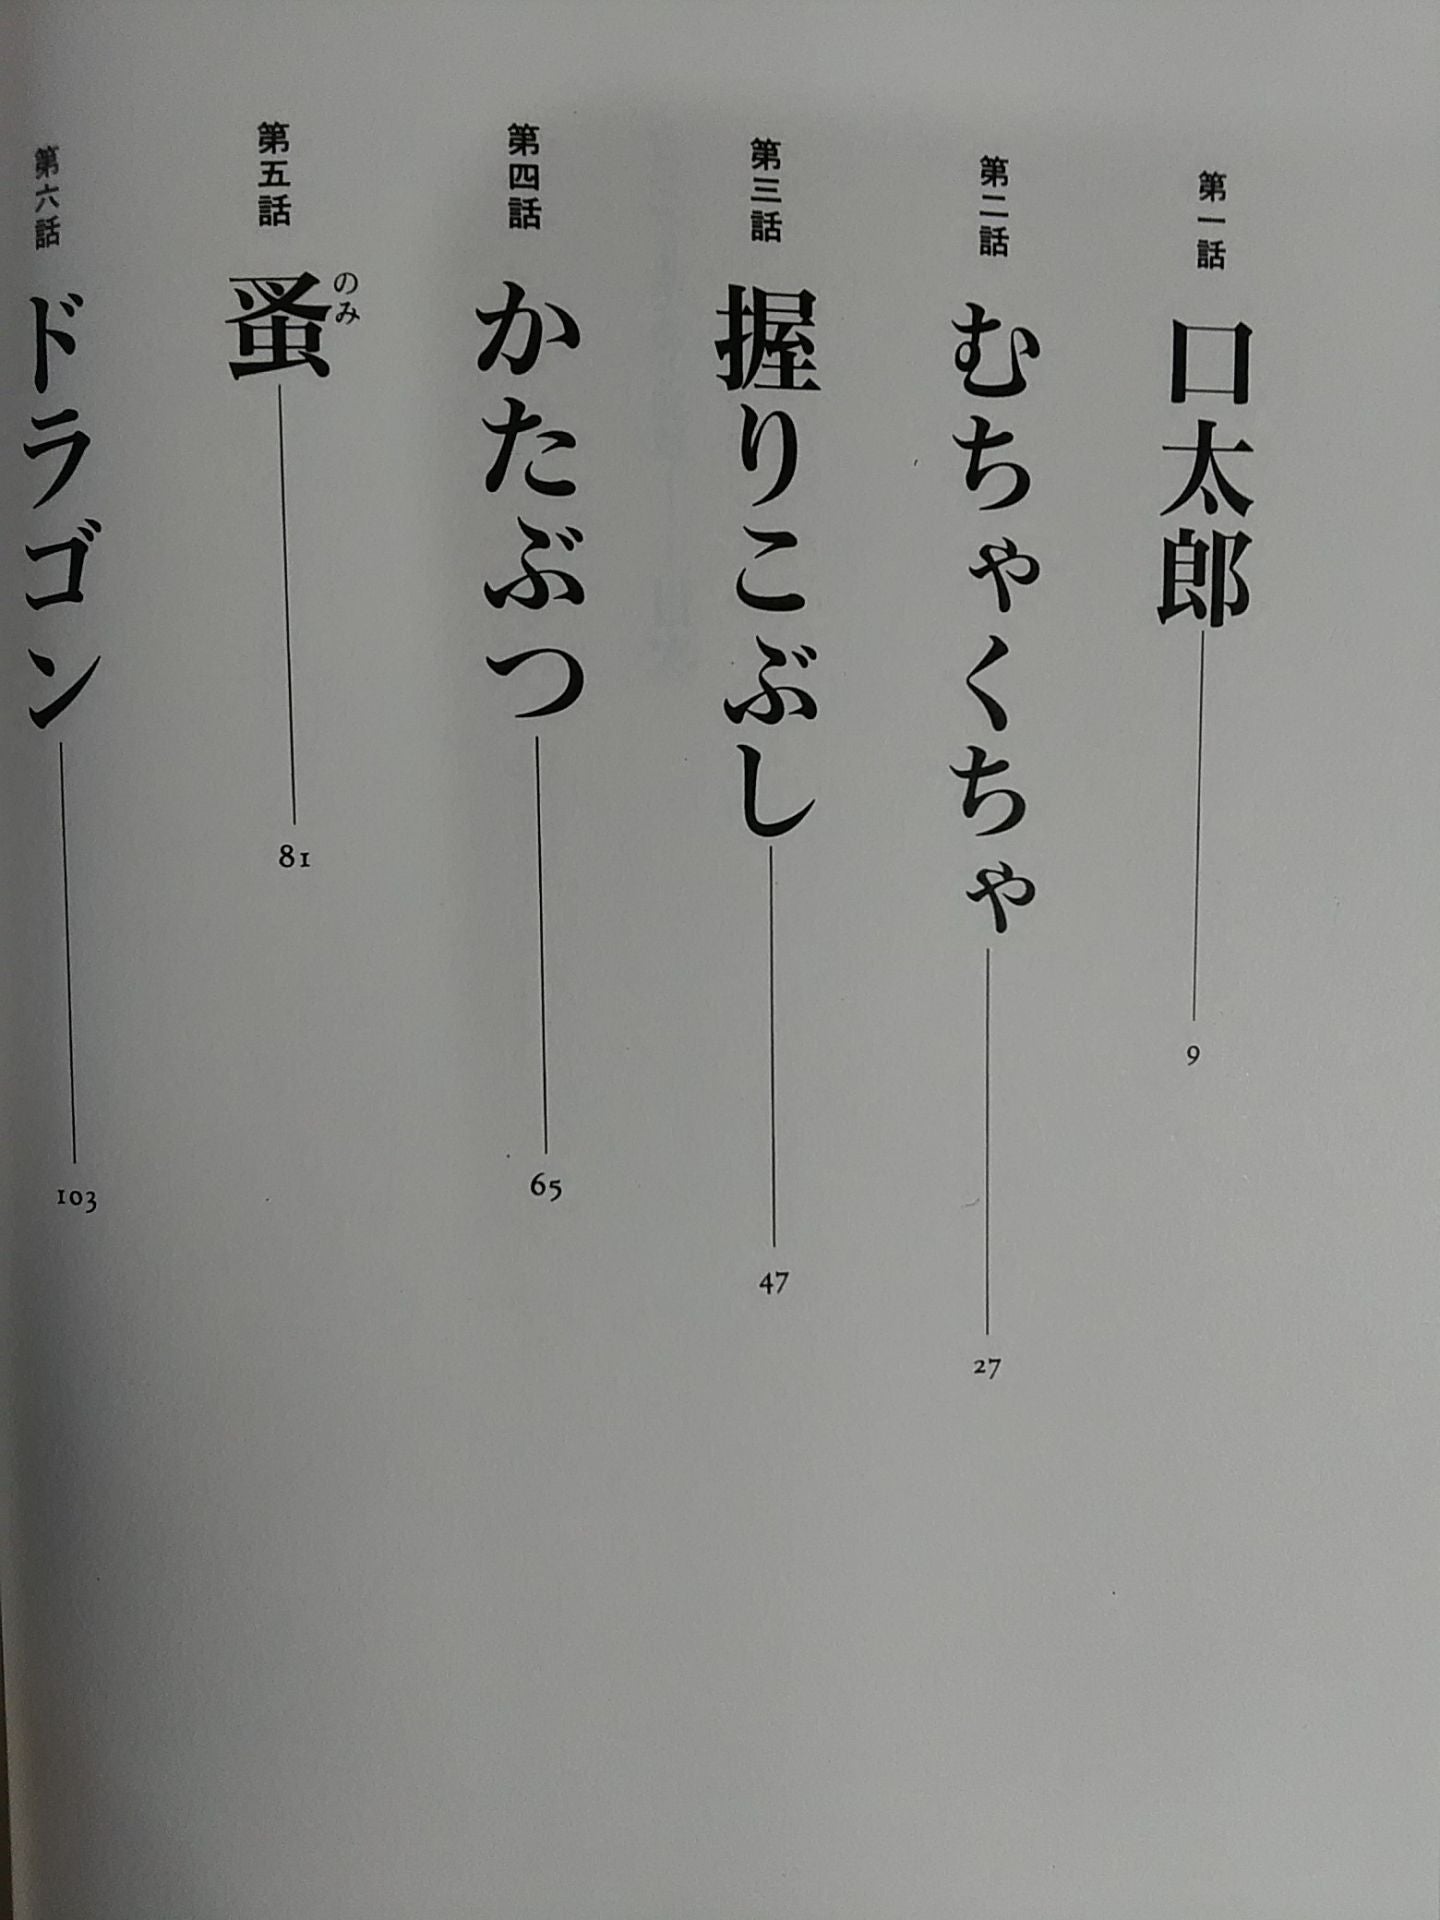 第一話 口太郎 9
第二話 むちゃくちゃ 27
第三話 握りこぶし 47
第四話 かたぶつ 65
第五話 蚤 のみ 81
第六話 ドラゴン 103